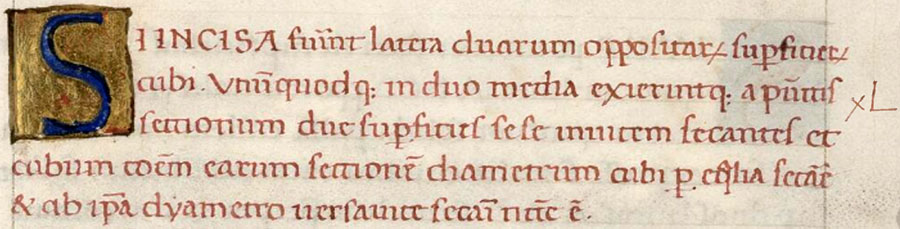 SI INCISA fuīnt latera duarum oppositaꝝ supficieꝝ
cubi . Vnūquodq; in duo media exierintq; a pūctis
sectionum due supficies sese inuicem secantes et
cubum coēm earum sectionē diametrum cubi p̱ eq̄lia secāe
& ab ip̄a dyametro uersauice secari ncē ē .
xL